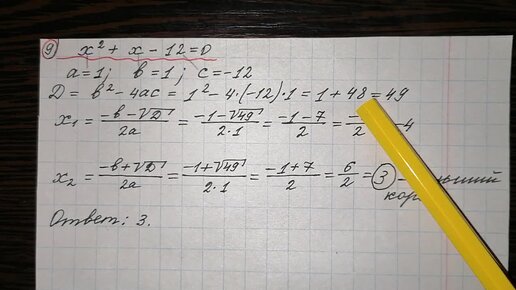 9 x² + x - 12 = 0
a = 1; b = 1; c = -12
D = b² - 4ac = 1² - 4·(-12)·1 = 1 + 48 = 49
x₁ = (-b-√D)/2a = (-1-√49)/2·1 = (-1-7)/2 = -4
x₂ = (-b+√D)/2a = (-1+√49)/2·1 = (-1+7)/2 = 6/2 = 3 -
Ответ: 3.